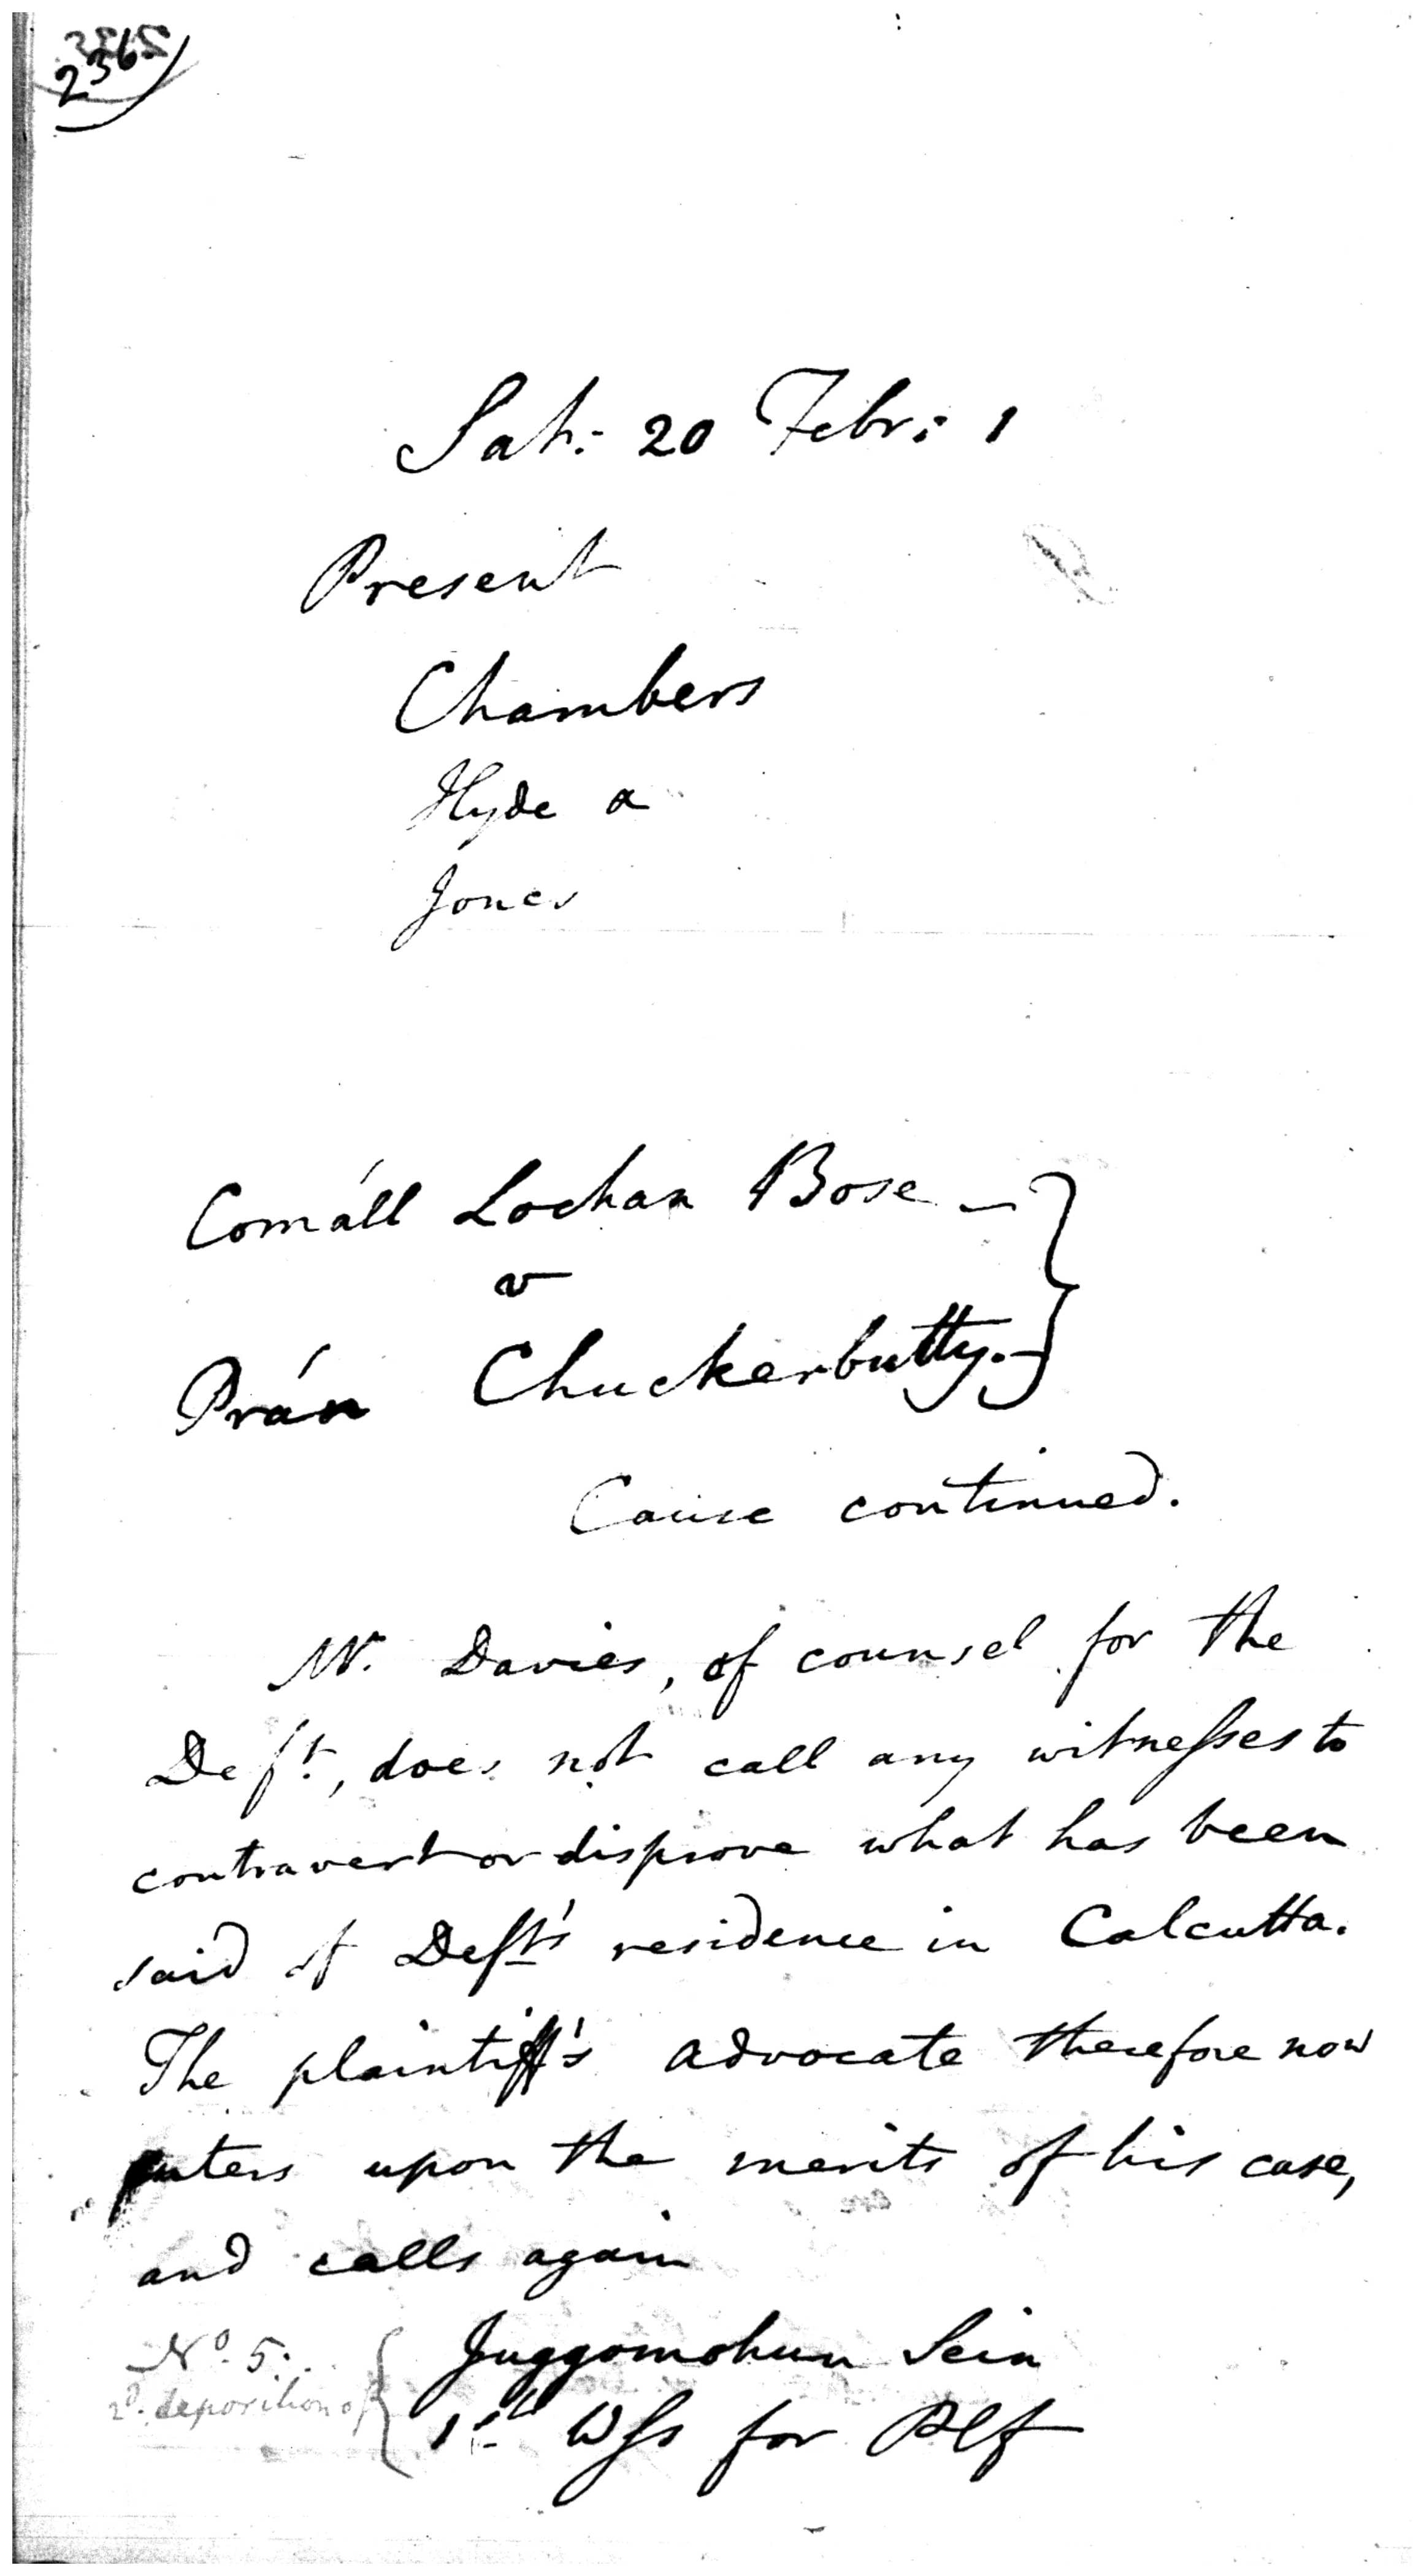 2365
Sat: 20 Febr: 1
Present
Chambers
Hyde a
Jones
Comáll Lochan Bose
v
Prán Chuckerbutty.
Cause continued.
Mr. Davies, of counsel for the
Deft., does not call any witnesses to
contravert or disprove what has been
said of Deft's residence in Calcutta.
The plaintiff's advocate therefore now
enters upon the merits of his case,
and calls again
No. 5: Juggomohun Sein
2d. deposition of 1st Wss for Plf